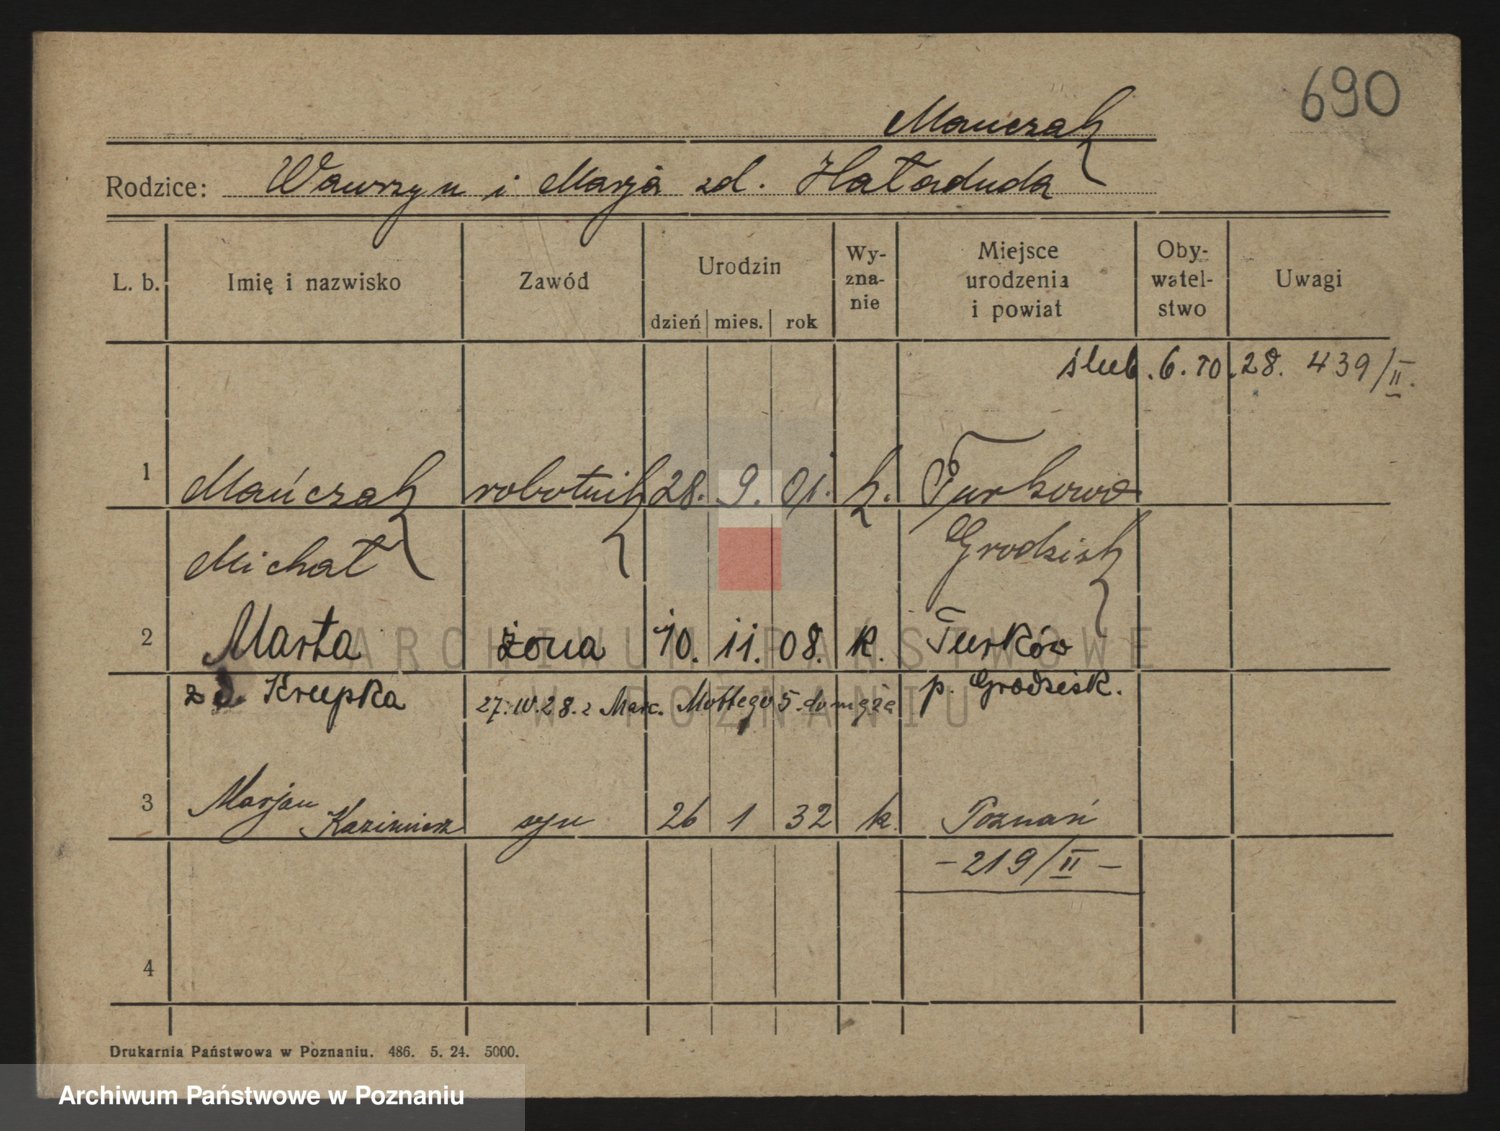 690
Mańczak
Rodzice: Wawrzyn i Marja zd. Haładuda
L. b. Imię i nazwisko Zawód Urodzin dzień mies. rok Wy-zna-nie Miejsce urodzenia i powiat Oby-watel-stwo Uwagi
ślub. 6. 10. 28. 439/II.
1 Mańczak robotnik 28. 9. 01. k. Turkowo
Michał Grodzisk
2 Marta żona 10. 11. 08. k. Turków
zd. Krupka 27. IV. 28. z Marc. Mottego 5. do męża p. Grodzisk.
3 Marjan Kazimierz syn 26 1 32 k. Poznań
- 219/II -
4
Drukarnia Państwowa w Poznaniu. 486. 5. 24. 5000.
ARCHIWUM PAŃSTWOWE
W POZNANIU
Archiwum Państwowe w Poznaniu